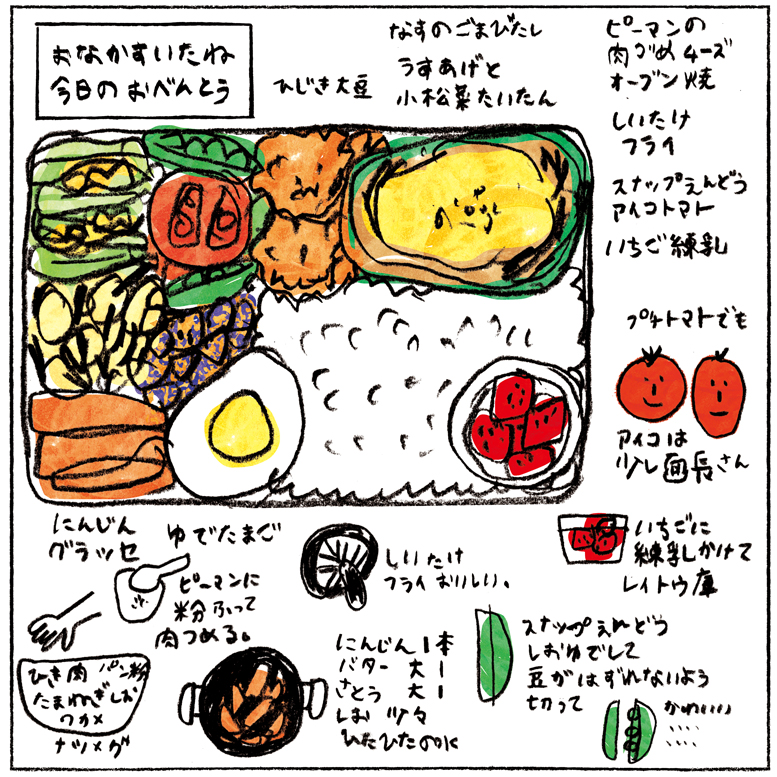 おなかすいたね
今日のおべんとう
ひじき大豆
なすのごまびたし
うすあげと
小松菜たいたん
ピーマンの
肉づめチーズ
オーブン焼
しいたけ
フライ
スナップえんどう
アイコトマト
いちご練乳
プチトマトでも
アイコは
少し面長さん
にんじん
グラッセ
ゆでたまご
ピーマンに
粉ふって
肉つめる。
ひき肉 パン粉
たまねぎ しお
ワカメ
ナツメグ
しいたけ
フライおいしい。
にんじん1本
バター 大1
さとう 大1
しお 少々
ひたひたの水
いちごに
練乳かけて
レイトウ庫
スナップえんどう
しおゆでして
豆がはずれないよう
切って
かわいい